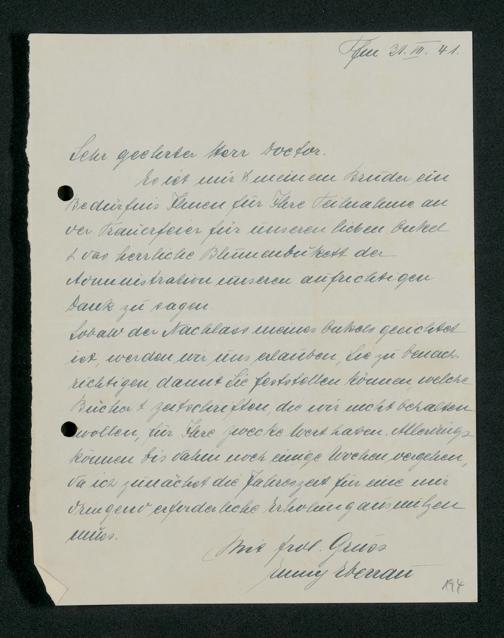 31. III. 41.
Sehr geehrter Herr Doctor.
Es ist mir & meinem Bruder ein
Bedürfnis Ihnen für Ihre Teilnahme an
der Trauerfeier für unseren lieben Onkel
& das herrliche Blumenbukett der
Administration unseren aufrichtigen
Dank zu sagen
Sobald der Nachlass meines Onkels gesichtet
ist, werden wir uns erlauben, Sie zu benach-
richtigen, damit Sie feststellen können, welche
Bücher & Zeitschriften, die wir nicht behalten
wollen, für Ihre Zwecke Wert haben. Allerdings
können bis dahin noch einige Wochen vergehen,
da ich zunächst die Jahreszeit für eine mir
dringend erforderliche Erholung ausnützen
muss.
Mit frdl. Gruss
194